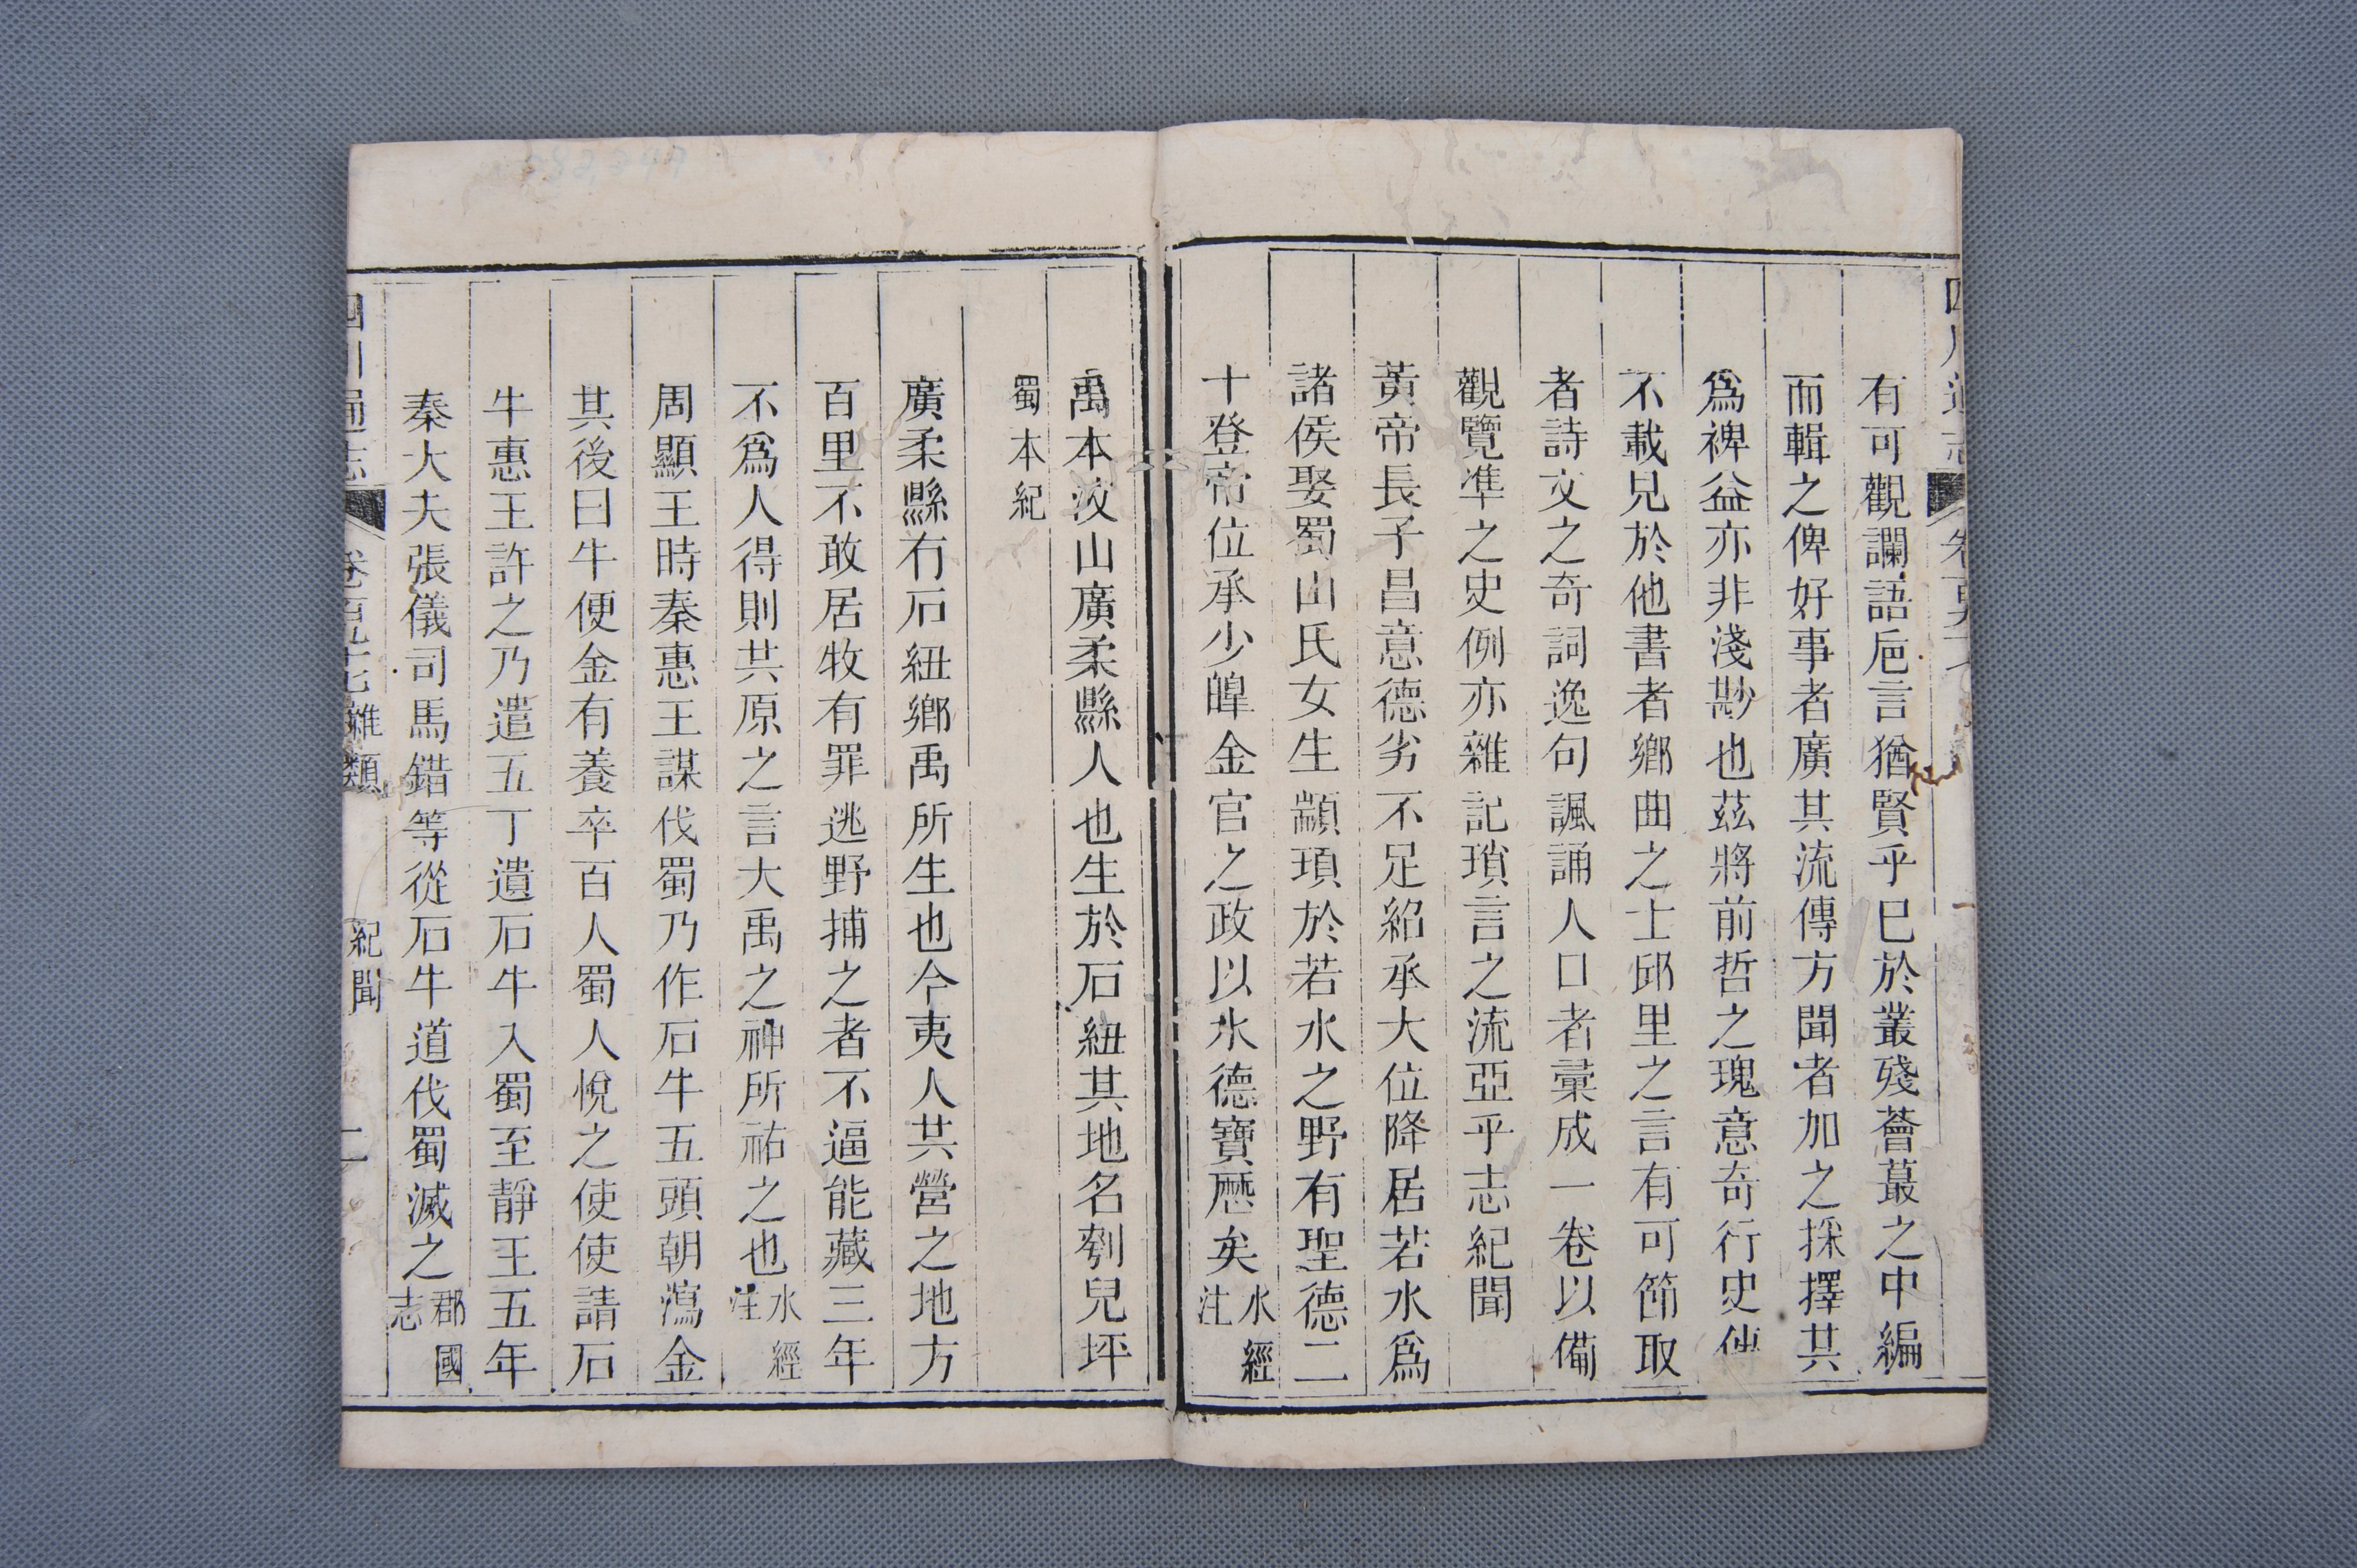 有可觀讕語巵言猶賢乎已於叢殘薈蕞之中編
而輯之俾好事者廣其流傳方聞者加之採擇其
爲裨益亦非淺尠也茲將前哲之瑰意奇行史傳
不載見於他書者鄉曲之士邱里之言有可節取
者詩文之奇詞逸句諷誦人口者彙成一卷以備
觀覽準之史例亦雜記瑣言之流亞乎志紀聞
黃帝長子昌意德劣不足紹承大位降居若水爲
諸侯娶蜀山氏女生顓頊於若水之野有聖德二
十登帝位承少皡金官之政以水德寶厯矣水經注
禹本汶山廣柔縣人也生於石紐其地名刳兒坪
蜀本紀
廣柔縣有石紐鄉禹所生也今夷人共營之地方
百里不敢居牧有罪逃野捕之者不逼能藏三年
不爲人得則共原之言大禹之神所祐之也水經注
周顯王時秦惠王謀伐蜀乃作石牛五頭朝瀉金
其後曰牛便金有養卒百人蜀人悅之使使請石
牛惠王許之乃遣五丁遺石牛入蜀至靜王五年
秦大夫張儀司馬錯等從石牛道伐蜀滅之郡國志
四川通志 雜類 紀聞 二